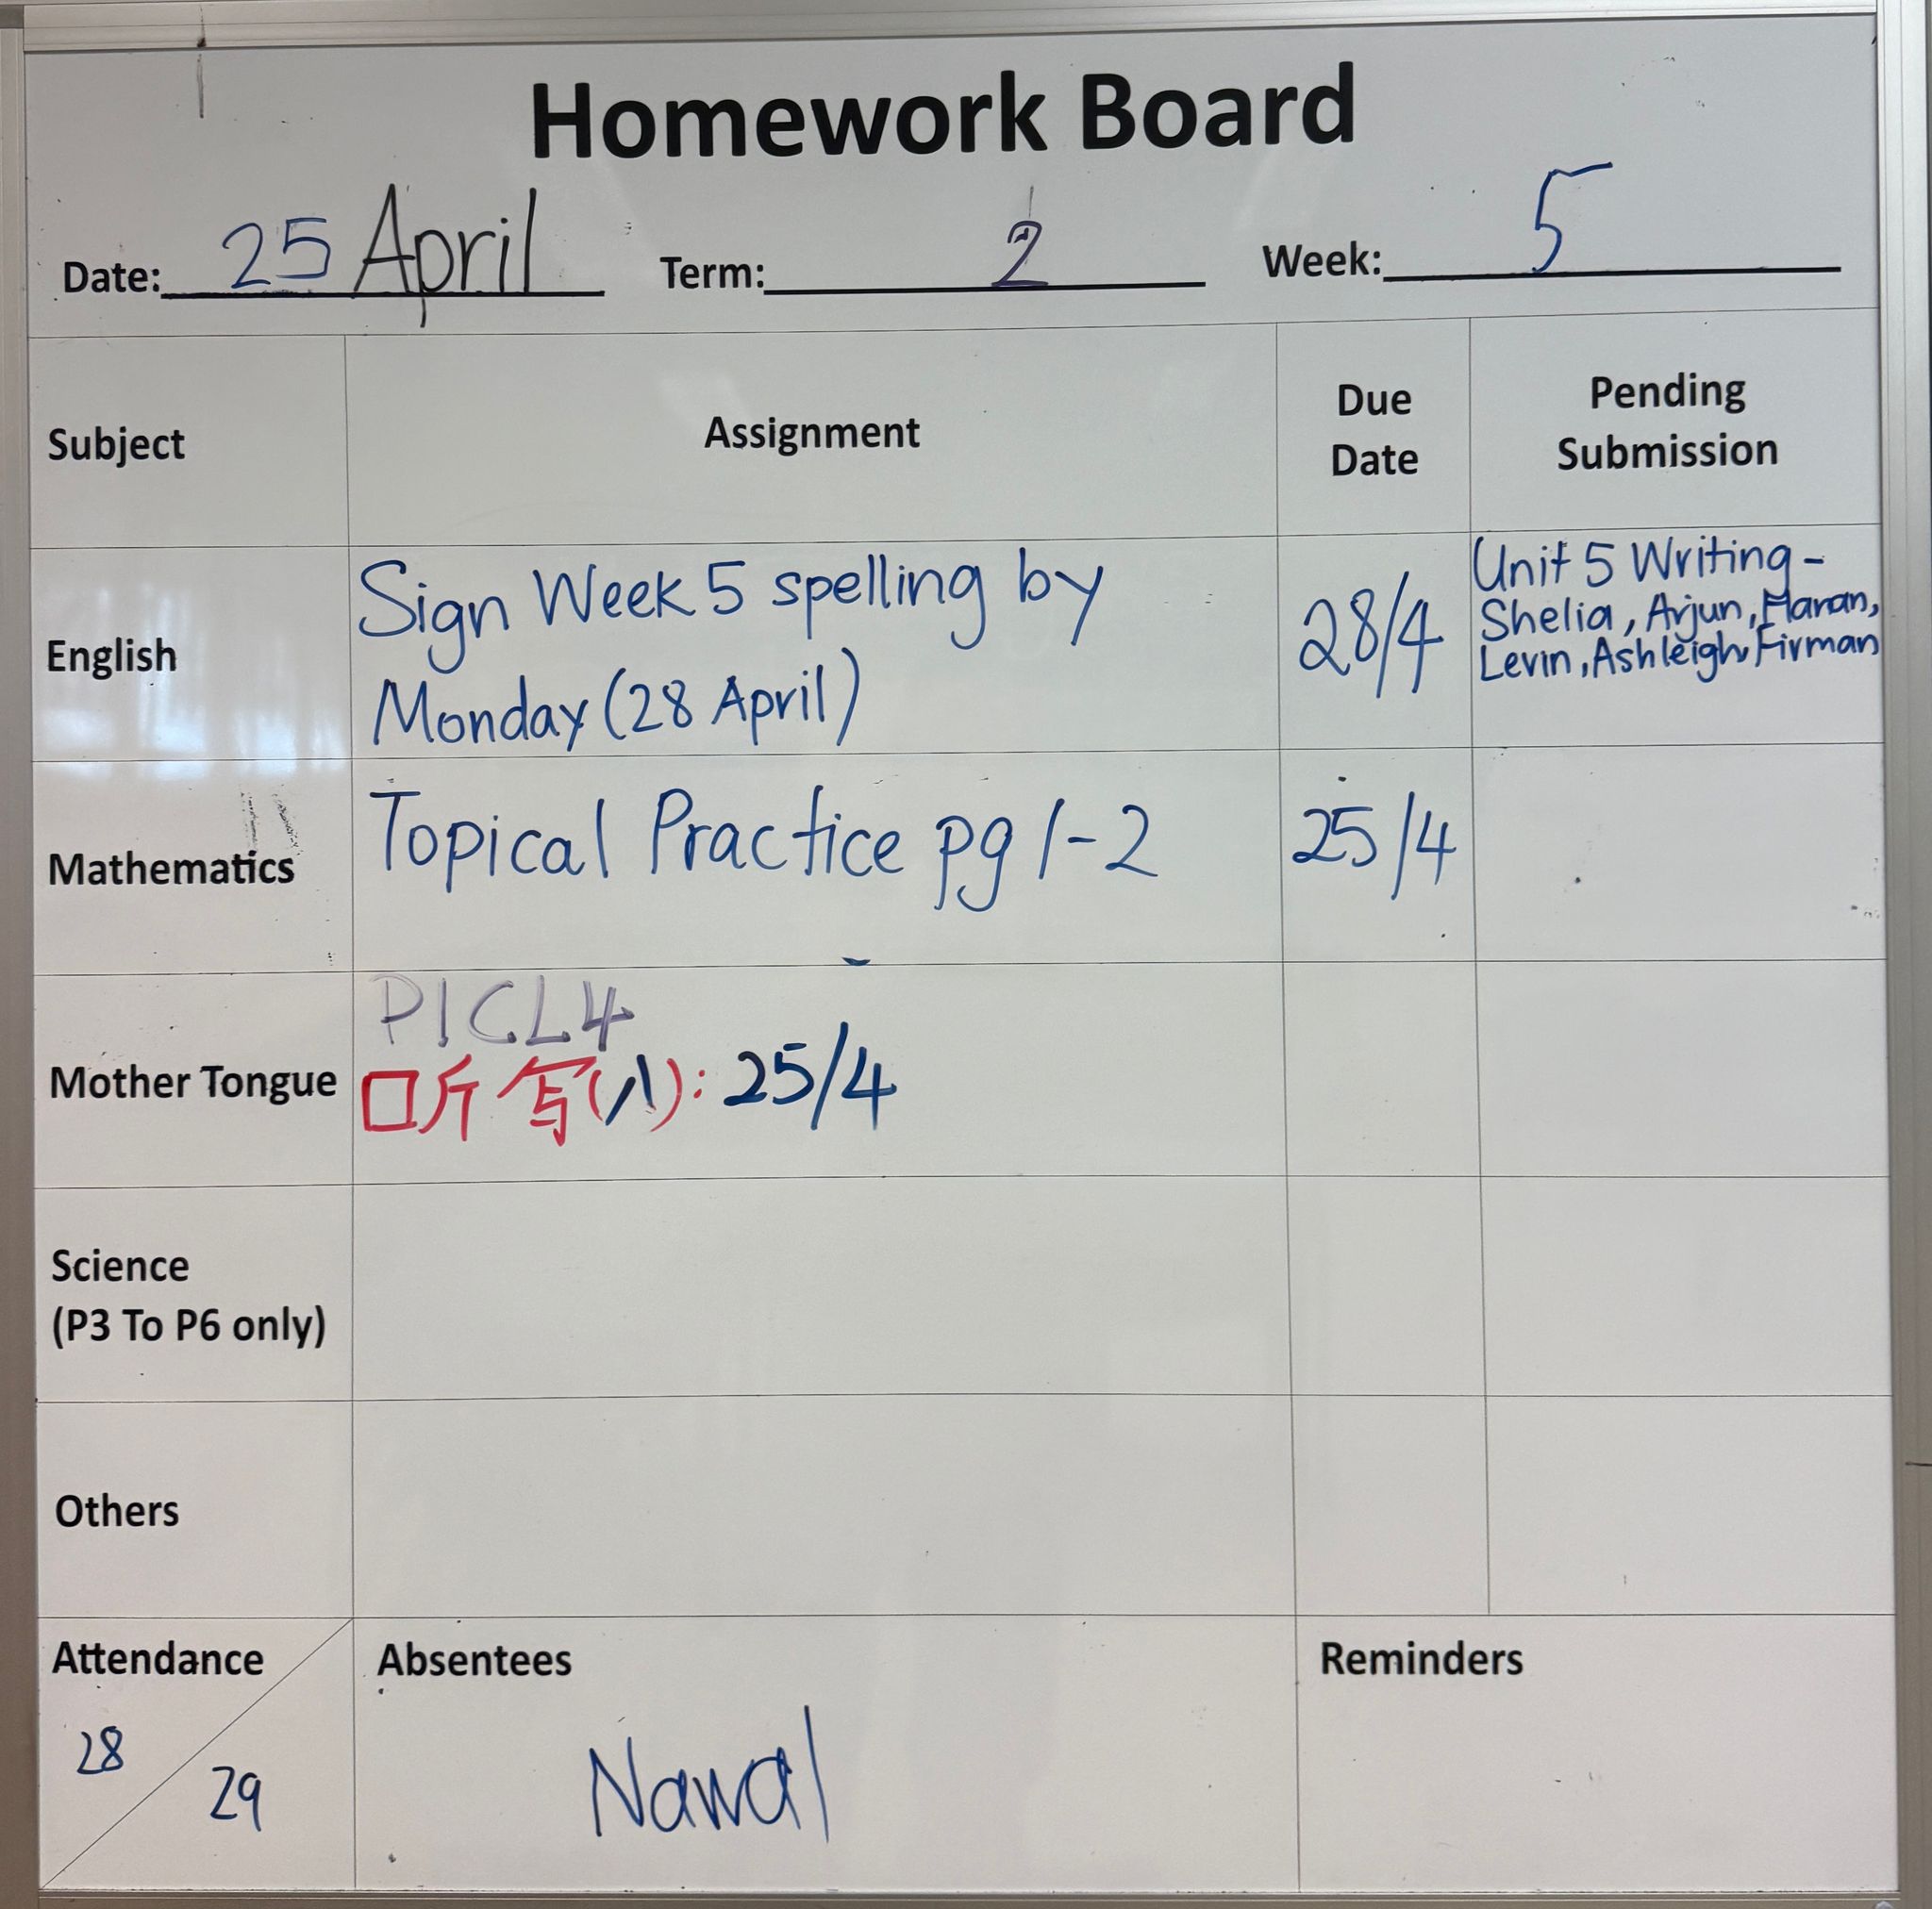 Homework Board
Date: 25 April Term: 2 Week: 5
Subject
Assignment
Due
Date
Pending
Submission
English
Sign Week 5 spelling by
Monday (28 April)
28/4
Unit 5 Writing -
Shelia, Arjun, Haran,
Levin, Ashleigh, Firman
Mathematics
Topical Practice pg 1-2
25/4
Mother Tongue
P1CL4
听写(八): 25/4
Science
(P3 To P6 only)
Others
Attendance
28
29
Absentees
Nawal
Reminders